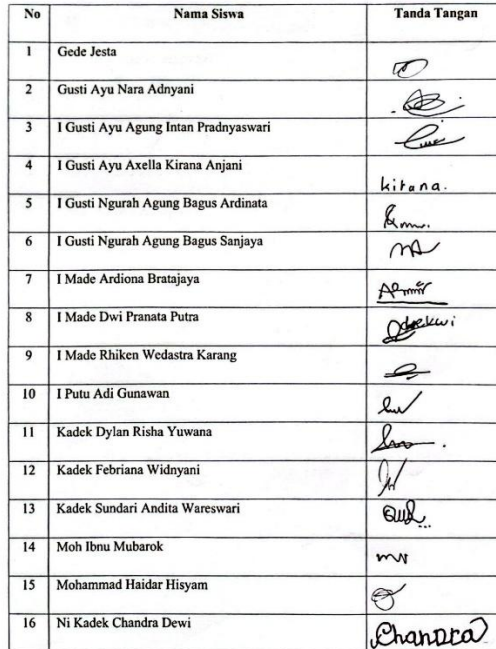 No Nama Siswa Tanda Tangan
1 Gede Jesta
2 Gusti Ayu Nara Adnyani
3 I Gusti Ayu Agung Intan Pradnyaswari
4 I Gusti Ayu Axella Kirana Anjani kirana.
5 I Gusti Ngurah Agung Bagus Ardinata
6 I Gusti Ngurah Agung Bagus Sanjaya
7 I Made Ardiona Bratajaya
8 I Made Dwi Pranata Putra
9 I Made Rhiken Wedastra Karang
10 I Putu Adi Gunawan
11 Kadek Dylan Risha Yuwana
12 Kadek Febriana Widnyani
13 Kadek Sundari Andita Wareswari
14 Moh Ibnu Mubarok
15 Mohammad Haidar Hisyam
16 Ni Kadek Chandra Dewi Chandra